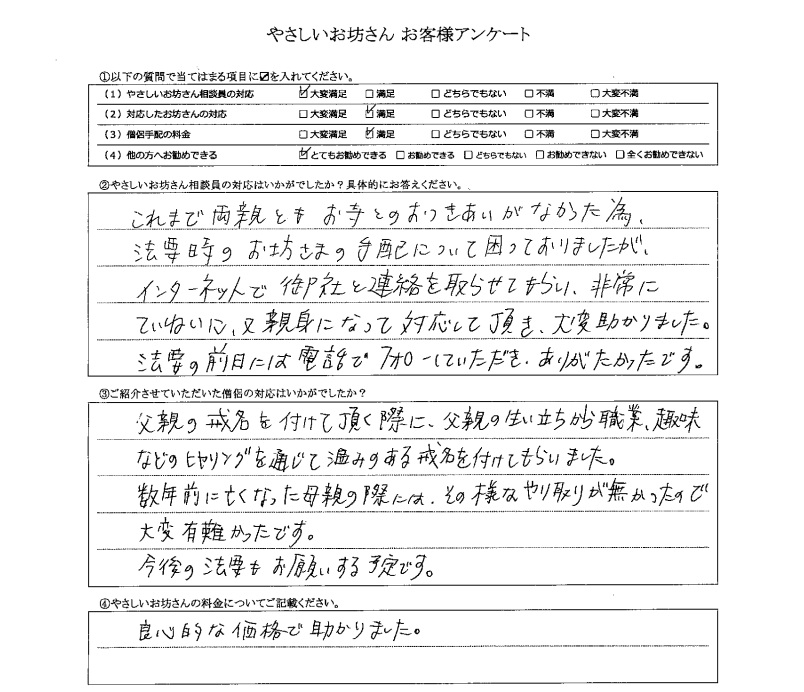 やさしいお坊さん お客様アンケート
①以下の質問で当てはまる項目に☑を入れてください。
(1) やさしいお坊さん相談員の対応 ☑大変満足 □満足 □どちらでもない □不満 □大変不満
(2) 対応したお坊さんの対応 □大変満足 ☑満足 □どちらでもない □不満 □大変不満
(3) 僧侶手配の料金 □大変満足 ☑満足 □どちらでもない □不満 □大変不満
(4) 他の方へお勧めできる ☑とてもお勧めできる □お勧めできる □どちらでもない □お勧めできない □全くお勧めできない
②やさしいお坊さん相談員の対応はいかがでしたか？具体的にお答えください。
これまで両親とも お寺とのおつきあいがなかった為、
法要時のお坊さまの手配について困っておりましたが、
インターネットで御社と連絡を取らせてもらい、非常に
ていねいに、又親身になって対応して頂き、大変助かりました。
法要の前日には電話でフォローしていただき、ありがたかったです。
③ご紹介させていただいた僧侶の対応はいかがでしたか？
父親の戒名を付けて頂く際に、父親の生い立ちから職業、趣味
などのヒヤリングを通じて温みのある戒名を付けてもらいました。
数年前に亡くなった母親の際には、その様なやり取りが無かったので
大変有難かったです。
今後の法要もお願いする予定です。
④やさしいお坊さんの料金についてご記載ください。
良心的な価格で助かりました。